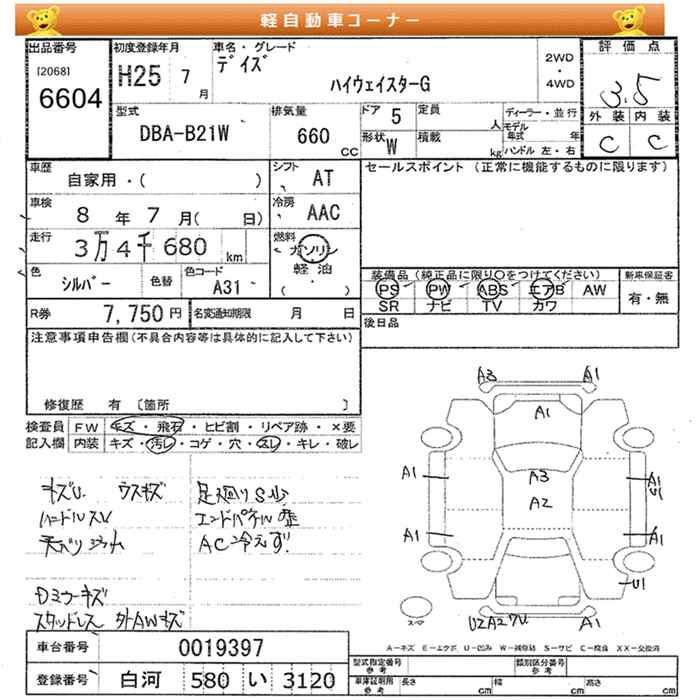 軽自動車コーナー
出品番号 初度登録年月 車名・グレード 評価点
[2068] 6604
H25 7月
デイズ
ハイウェイスターG
2WD・4WD
3.5
外装 内装
C C
型式 排気量 ドア 5 定員 人 ディーラー・並行
DBA-B21W 660 CC
形状 W 積載 kg
モデル年式 年
ハンドル 左・右
車歴 シフト セールスポイント (正常に機能するものに限ります)
自家用・( ) AT
車検 8年7月( 日) 冷房 AAC
走行 3万4千680 km 燃料 ガソリン 軽油 ( ・ )
色 シルバー 色替 色コード A31
装備品(純正品に限り○をつけてください) 新車保証書
PS PW ABS エアB AW 有・無
SR ナビ TV カワ
R券 7,750円 名変通知期限 月 日
後日品
注意事項申告欄(不具合内容等は具体的に記入して下さい)
修復歴 有 〔箇所 〕
検査員記入欄 FW キズ・飛石・ヒビ割・リペア跡・×要
内装 キズ・汚レ・コゲ・穴・スレ・キレ・破レ
キズU ウスキズ 足廻りS少
ハンドルスレ
AC冷えず
Dミラーキズ
スタッドレス 外AWキズ
A3 A1
A1
A1 A3 A1
U1
A2
A1 A1
U1
スペア
A1
A-キズ E-エクボ U-凹み W-補修跡 S-サビ C-腐食 XX-交換済
車台番号 0019397
登録番号 白河 580 い 3120
型式指定番号 参考 類別区分番号 参考
車庫証明用 参考 長さ cm 幅 cm 高さ cm